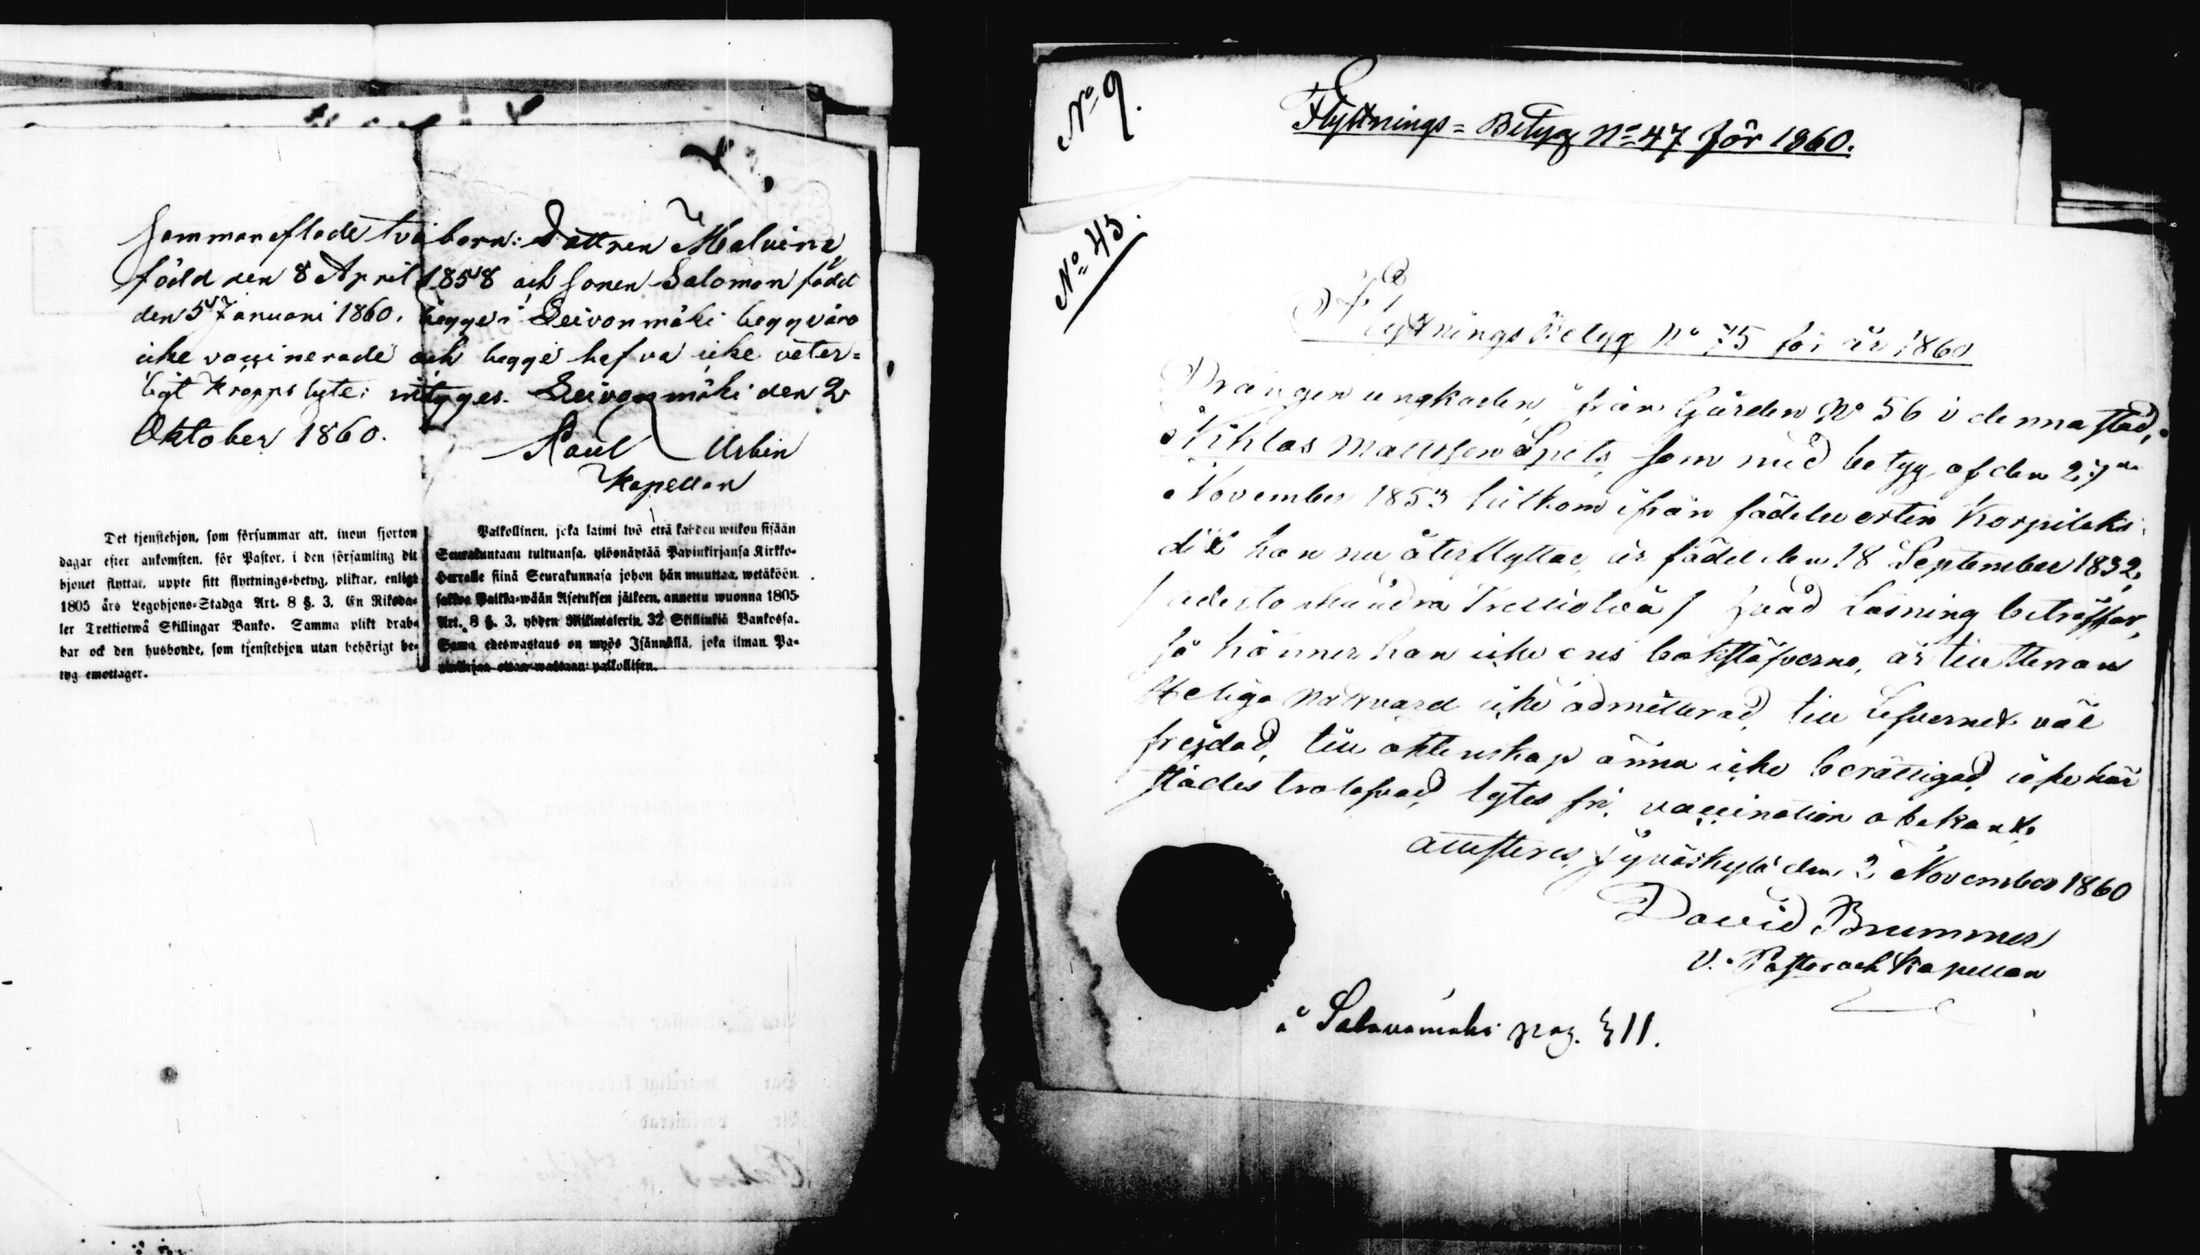 Sammanaflade två barn: Dottren Malvina
född den 8 April 1858 och Sonen Salomon född
den 5 Januari 1860. begge i Leivonmäki begge våro
icke vaccinerade och begge hafva icke veter=
ligt kropps lyte; intyges. Leivonmäki den 2
Oktober 1860.
Paul Urbin
Kapellan
Det tjenstehjon, som försummar att, inom fjorton
dagar efter ankomsten, för Pastor, i den församling dit
hjonet flyttat, uppte sitt flyttnings-betyg, pliktar, enligt
1805 års Legohjons-Stadga Art. 8 §. 3, En Riksda-
ler Trettiotwå Skillingar Banko. Samma plikt drab-
bar ock den husbonde, som tjenstehjon utan behörigt be-
tyg emottager.
Palkollinen, joka laimi lyö että kahden wiikon sisään
Seurakuntaan tultuansa, ylösnäytää Papinkirjansa Kirkko-
Herralle siinä Seurakunnasa johon hän muuttaa, wetäköön
sakkoa Palkka-wään Asetuksen jälkeen, annettu wuonna 1805
Art. 8 §. 3, yhden Riksintalerin 32 Skillinkiä Bankossa.
Sama edeswastaus on myös Isännällä, joka ilman Pa-
pinkirjaa ottaa wastaan palkollisen.
No 9.
Flyttnings=Betyg No 47 för 1860.
No 43.
Flyttnings Betyg No 75 för år 1860
Drängen ungkarlen, från Gården No 56 i denna stad,
Niklas Mattsson Spets, som med betyg af den 27de
November 1853 hitkom ifrån födelseorten Korpilaks,
dit han nu återflyttar, är född den 18 September 1832,
/adertonhundra Trettiotvå/ hvad Läsning beträffar,
så känner han icke ens bokstäfverne, är till Herrans
Heliga Nattvard icke admitterad, till Lefvernet väl
frejdad, till äktenskap ännu icke berättigad, icke här
städes trolofvad, lytes fri, vaccination obekant,
attesteras, Jyväskylä den 2 November 1860
David Brummer
V. Pastor och Kapellan
å Salavamäki pag. 311.